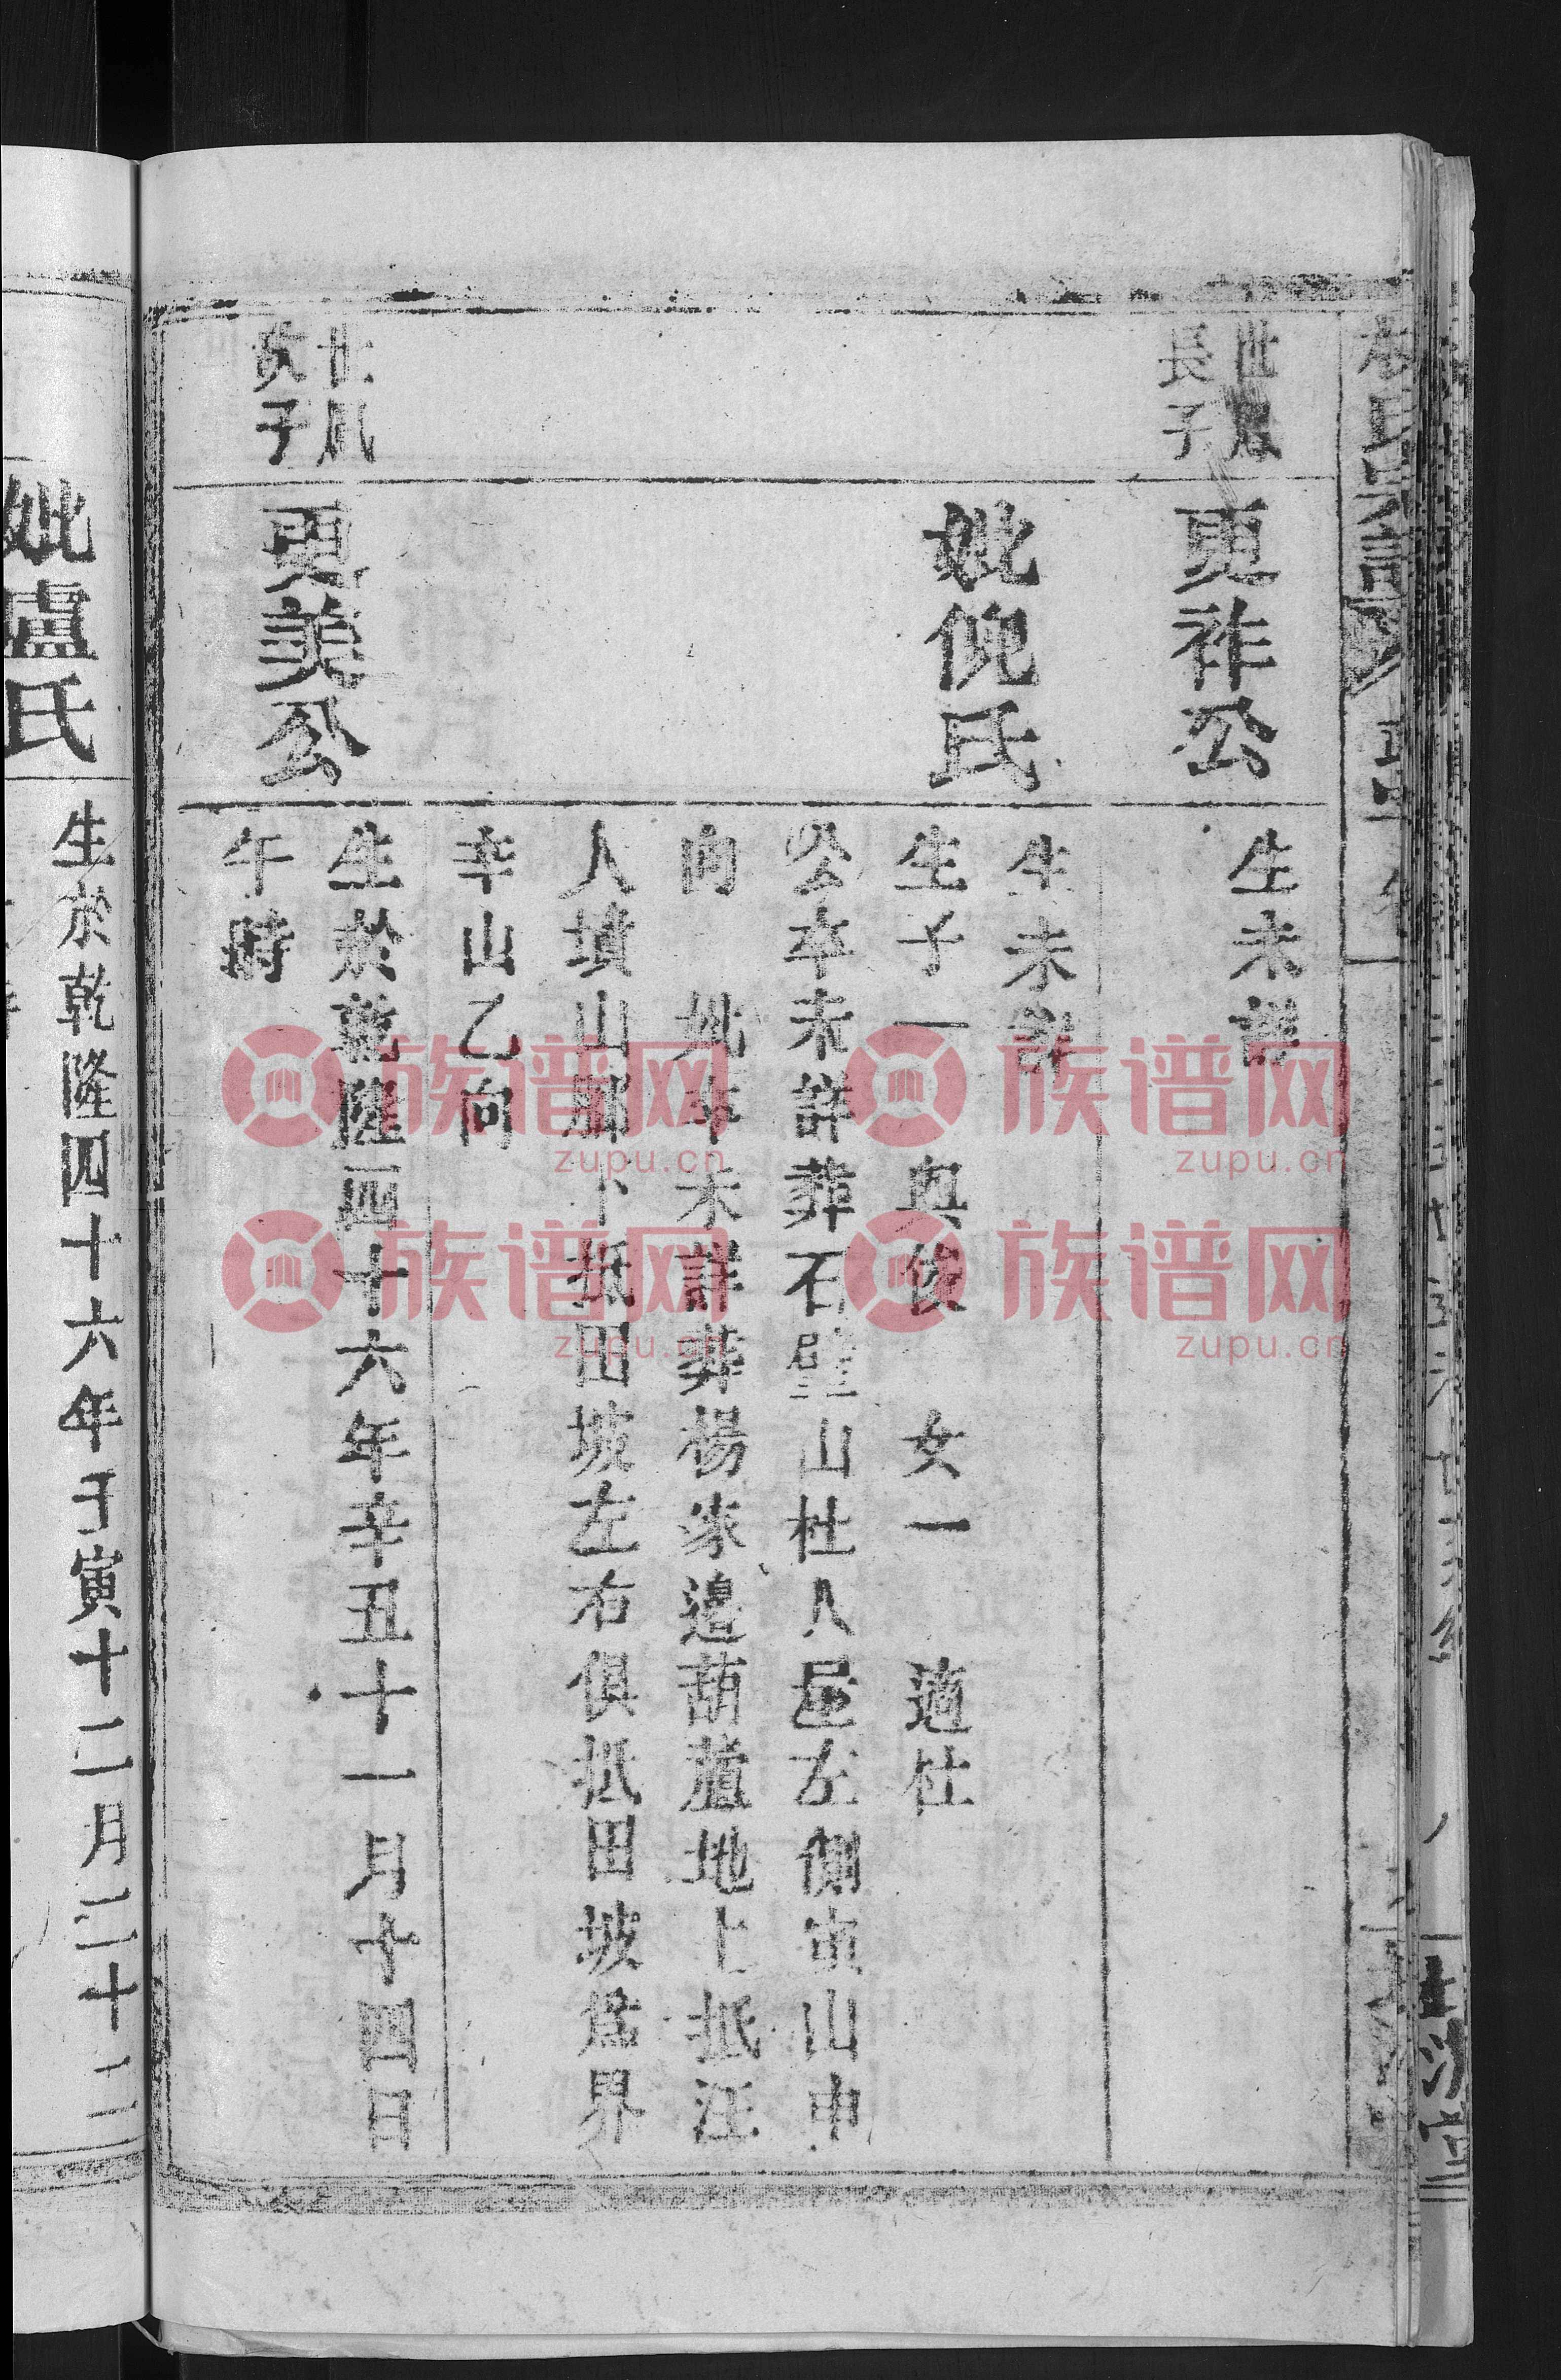 長子
更祚公
生未詳
妣倪氏
生未詳
生子一 與俊 女一 適杜
公卒未詳葬石壁山杜人屋左側寅山申
向 妣卒未詳葬楊家邊葫蘆地上抵汪
人墳山腳下抵田坡左右俱抵田坡為界
辛山乙向
次子
更美公
生於乾隆四十六年辛丑十一月十四日
午時
妣盧氏
生於乾隆四十六年壬寅十二月二十二
族谱网
zupu.cn
族谱网
zupu.cn
族谱网
zupu.cn
族谱网
zupu.cn